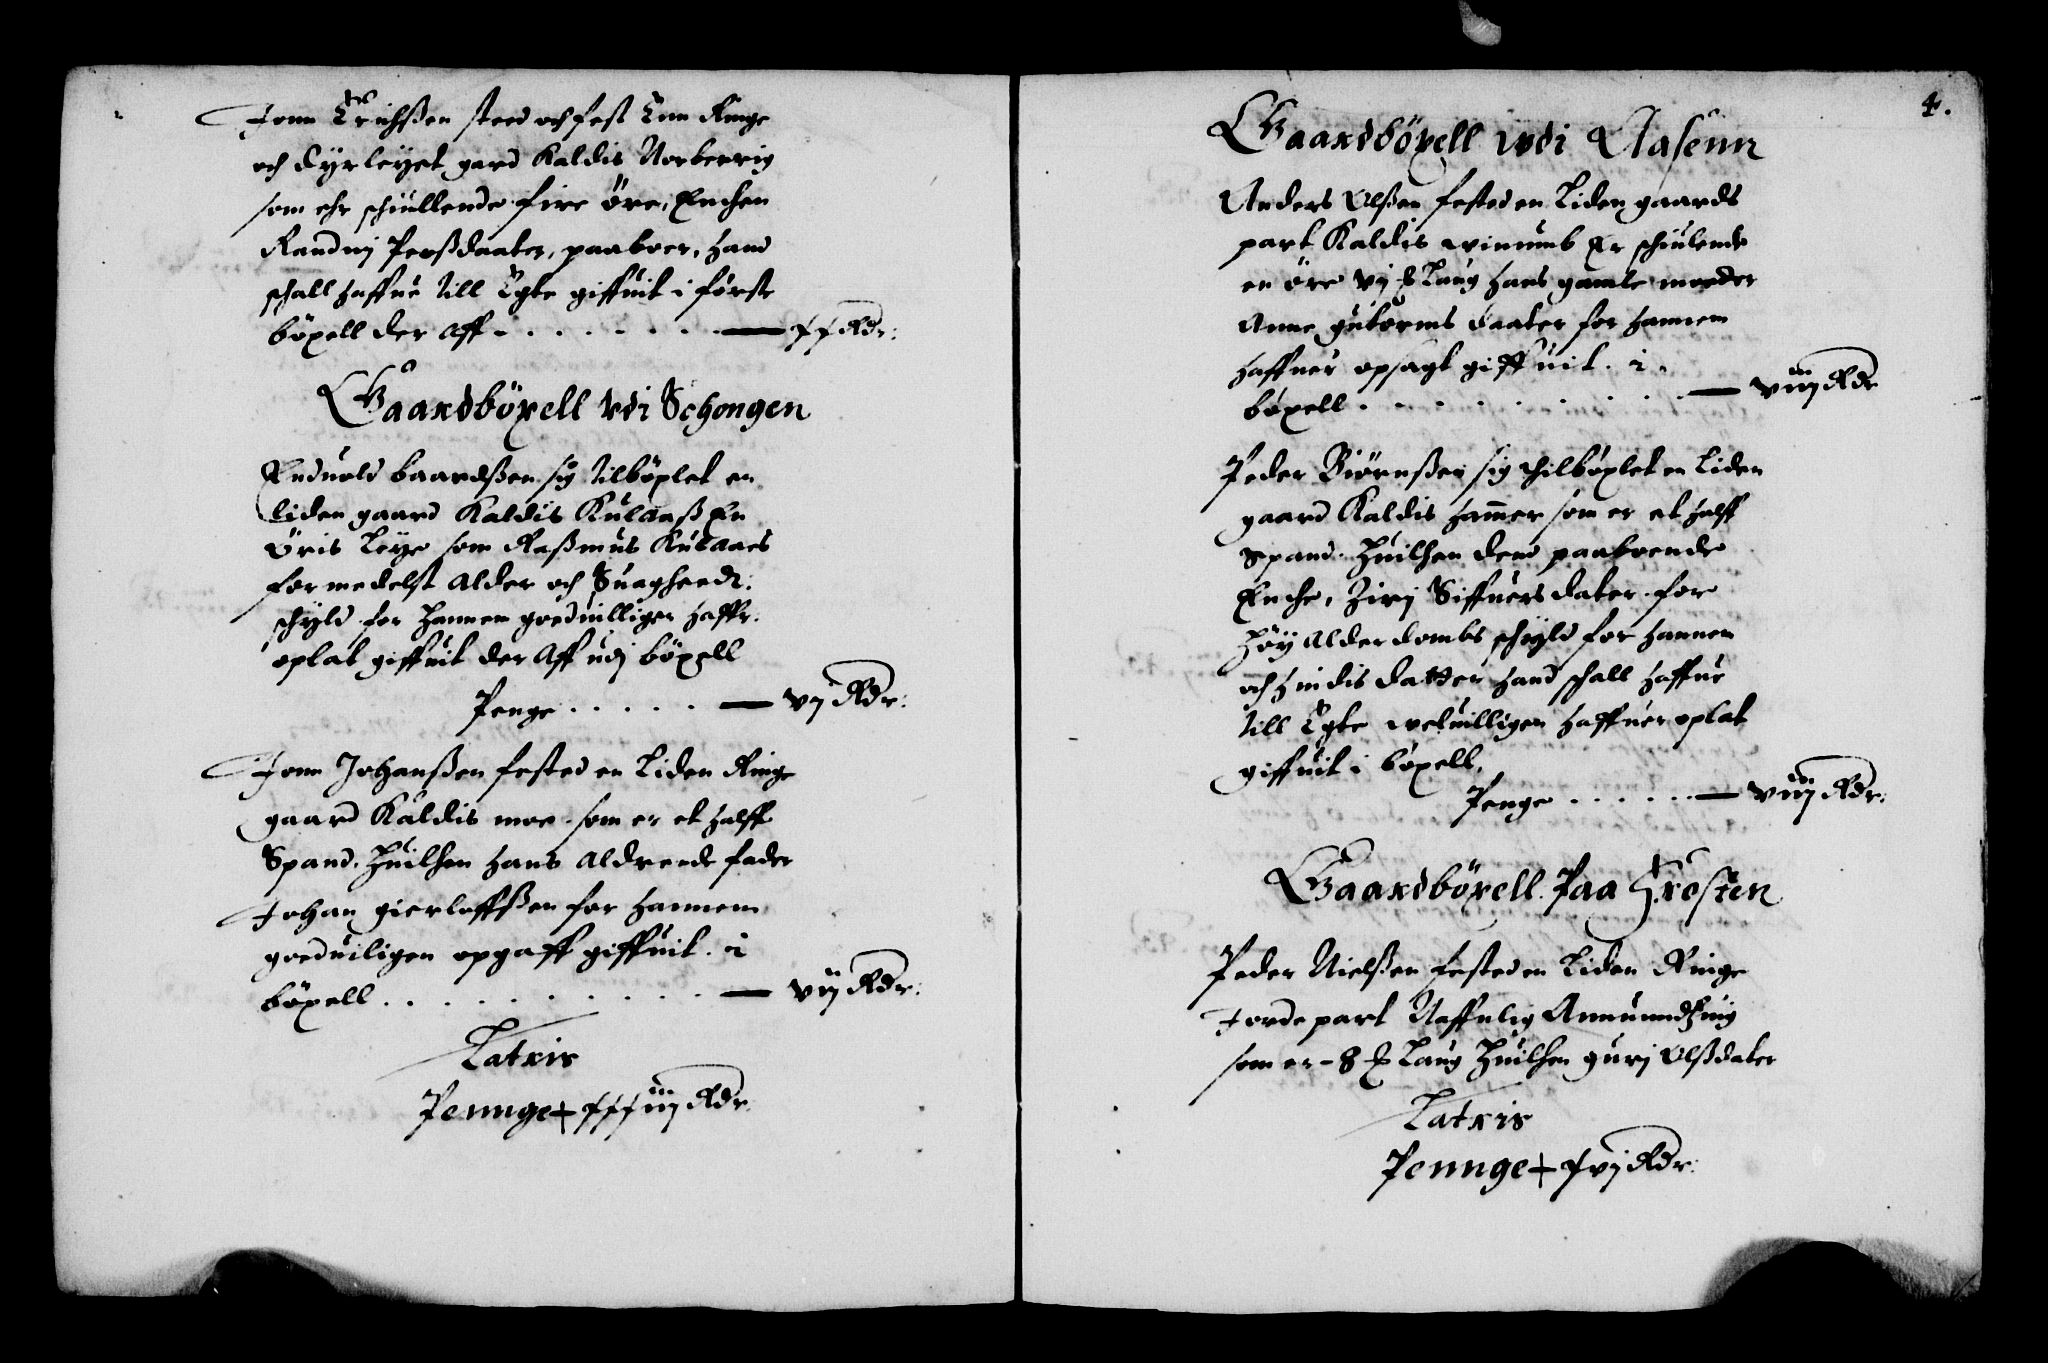 Jonn Erichßen sted och fest Enn Ringe
och dyrleyet gard Kaldis Norberrig
som ehr schiullende fire öre, Enchen
Randnj Perßdaater, paaboer, hand
schall haffue till Egte giffuit i förste
böxell der Aff - . . . . . . xx Rdr:
Gaardböxell vdi Schongen
Enduold baardßen sig tilböxlet en
liden gaard Kaldis Kulaaß En
Öris Leye som Raßmus Kulaaes
formedelst Alder och Suagheedz
schyld for Hannem goeduilligen haffr:
oplat giffuit der Aff udj böxell
Penge . . . . . vj Rdr:
Jonn Johanßen fested en Liden Ringe
gaard Kaldis moe som er et halff
Spand. Huilchen hans Aldrende fader
Johan gierloffßen for hannem
goeduiligen opgaff giffuit. i
böxell . . . . . . . . . . vij Rdr:
Latris
Pennge + xxxiij Rdr.
4.
Gaardböxell wdi Aasenn
Anders Olßen fested en Liden gaards
part Kaldis vinumb Er schiulende
en öre vj # Laug hans gamle moder
Anne gutorms daater for hannem
haffuer opsagt giffuit. i.
böxell . . . . . . . . . viij Rdr
Peder Biörnßen sig thilböxlet en Liden
gaard Kaldis hammer som er et halff
Spand. Huilchen dend paaboende
Enche, Zirj Siffuers dater for
Höy Alderdombs schyld for hannem
och hindis datter hand schall haffue
till Egte veluilligen haffuer oplat
giffuit i böxell,
Penge . . . . . viij Rdr:
Gaardböxell Paa Frosten
Peder Nielßen fested en Liden Ringe
Jordepart Naffnlig
som er - 8 # Laug Huilchen gurj Olßdater
Latris
Pennge + xvj Rdr: